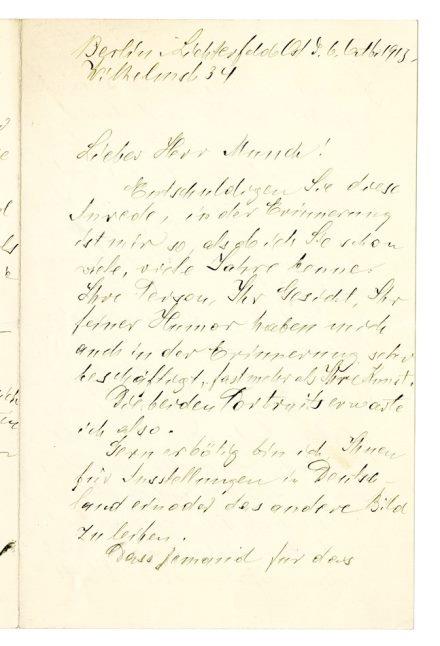 Berlin-Lichterfelde Ost d. 6. Octb. 1913,
Wilhelmstr 34
Lieber Herr Munch!
Entschuldigen Sie diese
Anrede, in der Erinnerung
ist mir so, als ob ich Sie schon
viele, viele Jahre kenne.
Ihre Person, Ihr Gesicht, Ihr
feiner Humor haben mich
auch in der Erinnerung sehr
beschäftigt, fast mehr als Ihre Kunst.
Die beiden Portraits erwarte
ich also.
Gern erbötig bin ich Ihnen
für Ausstellungen in Deutsch-
land ein oder das andere Bild
zu leihen.
Dass jemand für das